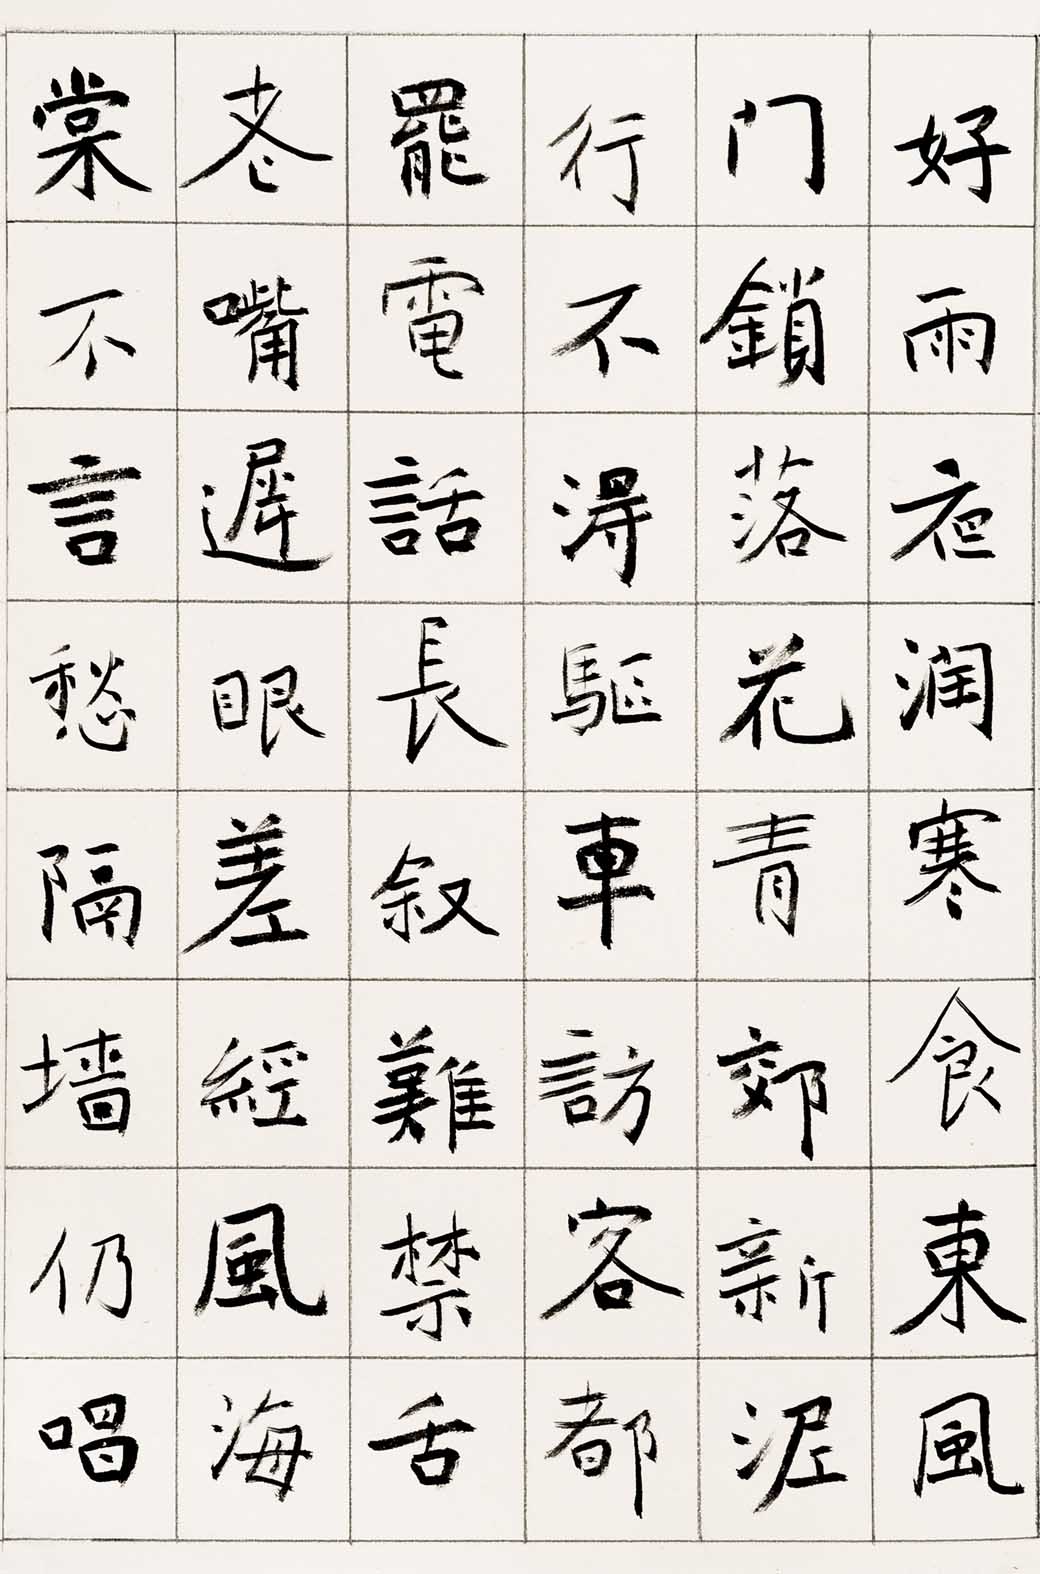 好雨夜润寒食東風
门鎖落花青郊新泥
行不淂驅車訪客都
罷電話長叙難禁舌
老嘴遲眼差經風海
棠不言愁隔墙仍唱